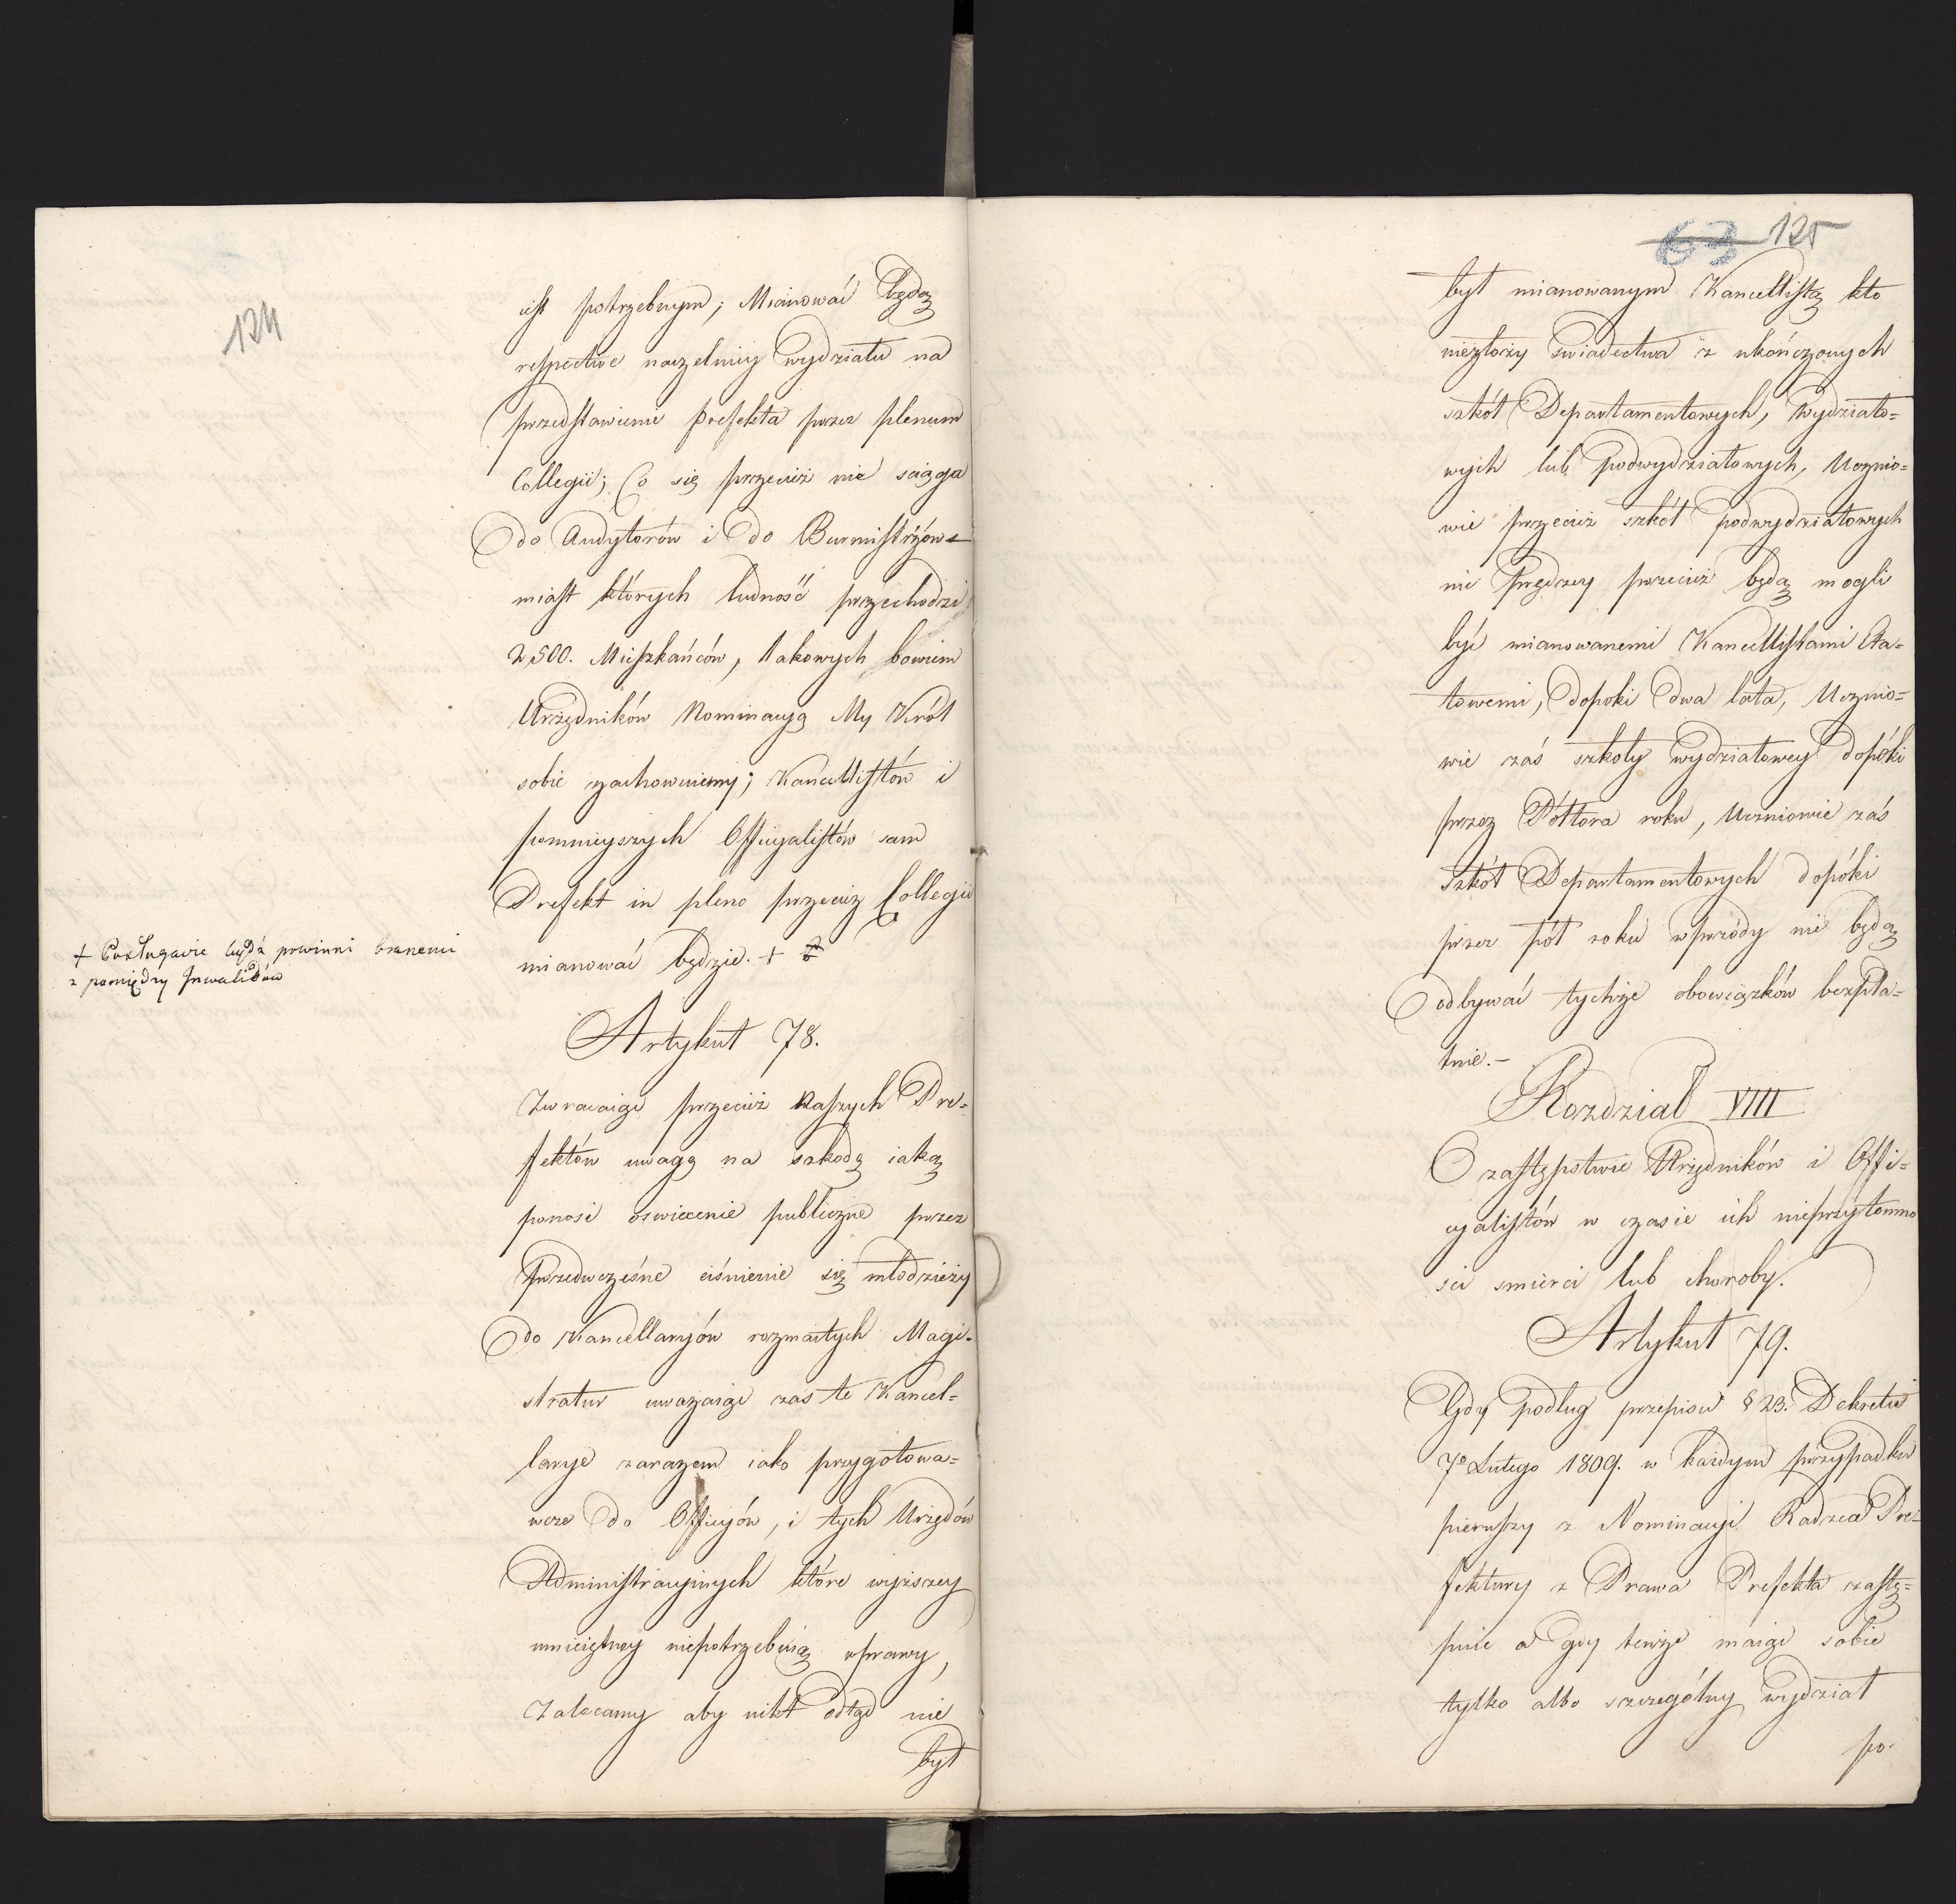 124
iest potrzebnym; Mianować będą
respective naczelnicy wydziału na
przedstawienie prefekta przez plenum
Collegii; Co się przecież nie sciąga
do Audytorów i do Burmistrzów
miast których ludność przechodzi
2,500. Mieszkańców, takowych bowiem
Urzędników Nominacyą My Król
sobie zachowuiemy; Kancellistów i
pomnieyszych Officyalistów sam
Prefekt in pleno przecież Collegii
mianować będzie. +
+ Posługacze będą powinni branemi
z pomiędzy Inwalidów
Artykuł 78.
Zwracaiąc przecież naszych Pre=
fektów uwagę na szkodę iaką
ponosi oswiecenie publiczne przez
przedwczesne ciśnienie się młodzieży
do Kancellaryów rozmaitych Magi=
stratur uwazaiąc zas te Kancel=
larye zarazem iako przygotowa=
wcze do Officyów, i tych Urzędów
Administracyinych które wyższey
umieiętney niepotrzebuią uprawy,
Zalecamy aby nikt odtąd nie
był
63 125
był mianowanym Kancellistą kto
niezłoży swiadectwa z ukończonych
szkół Departamentowych, Wydziało=
wych lub podwydziałowych, Ucznio=
wie przecież szkół podwydziałowych
nie prędzey przecież będą mogli
być mianowanemi Kancellistami Eta=
towemi, dopoki dwa lata, Ucznio=
wie zaś szkoły wydziałowey dopóki
przez Półtora roku, Uczniowie zaś
Szkół Departamentowych dopóki
przez pół roku wprzódy nie będą
odbywać tychże obowiązków bezpła=
tnie.-
Rozdział VIII
O zastępstwie Urzędników i Offi=
cyalistów w czasie ich nieprzytomno
sci smierci lub choroby.
Artykuł 79.
Gdy podług przepisu § 23. Dekretu
7º Lutego 1809. w każdym przypadku
pierwszy z Nominacyi Radzca Pre=
fektury z Prawa Prefekta zastę=
puie a gdy tenże maiąc sobie
tylko albo szczególny wydział
po-